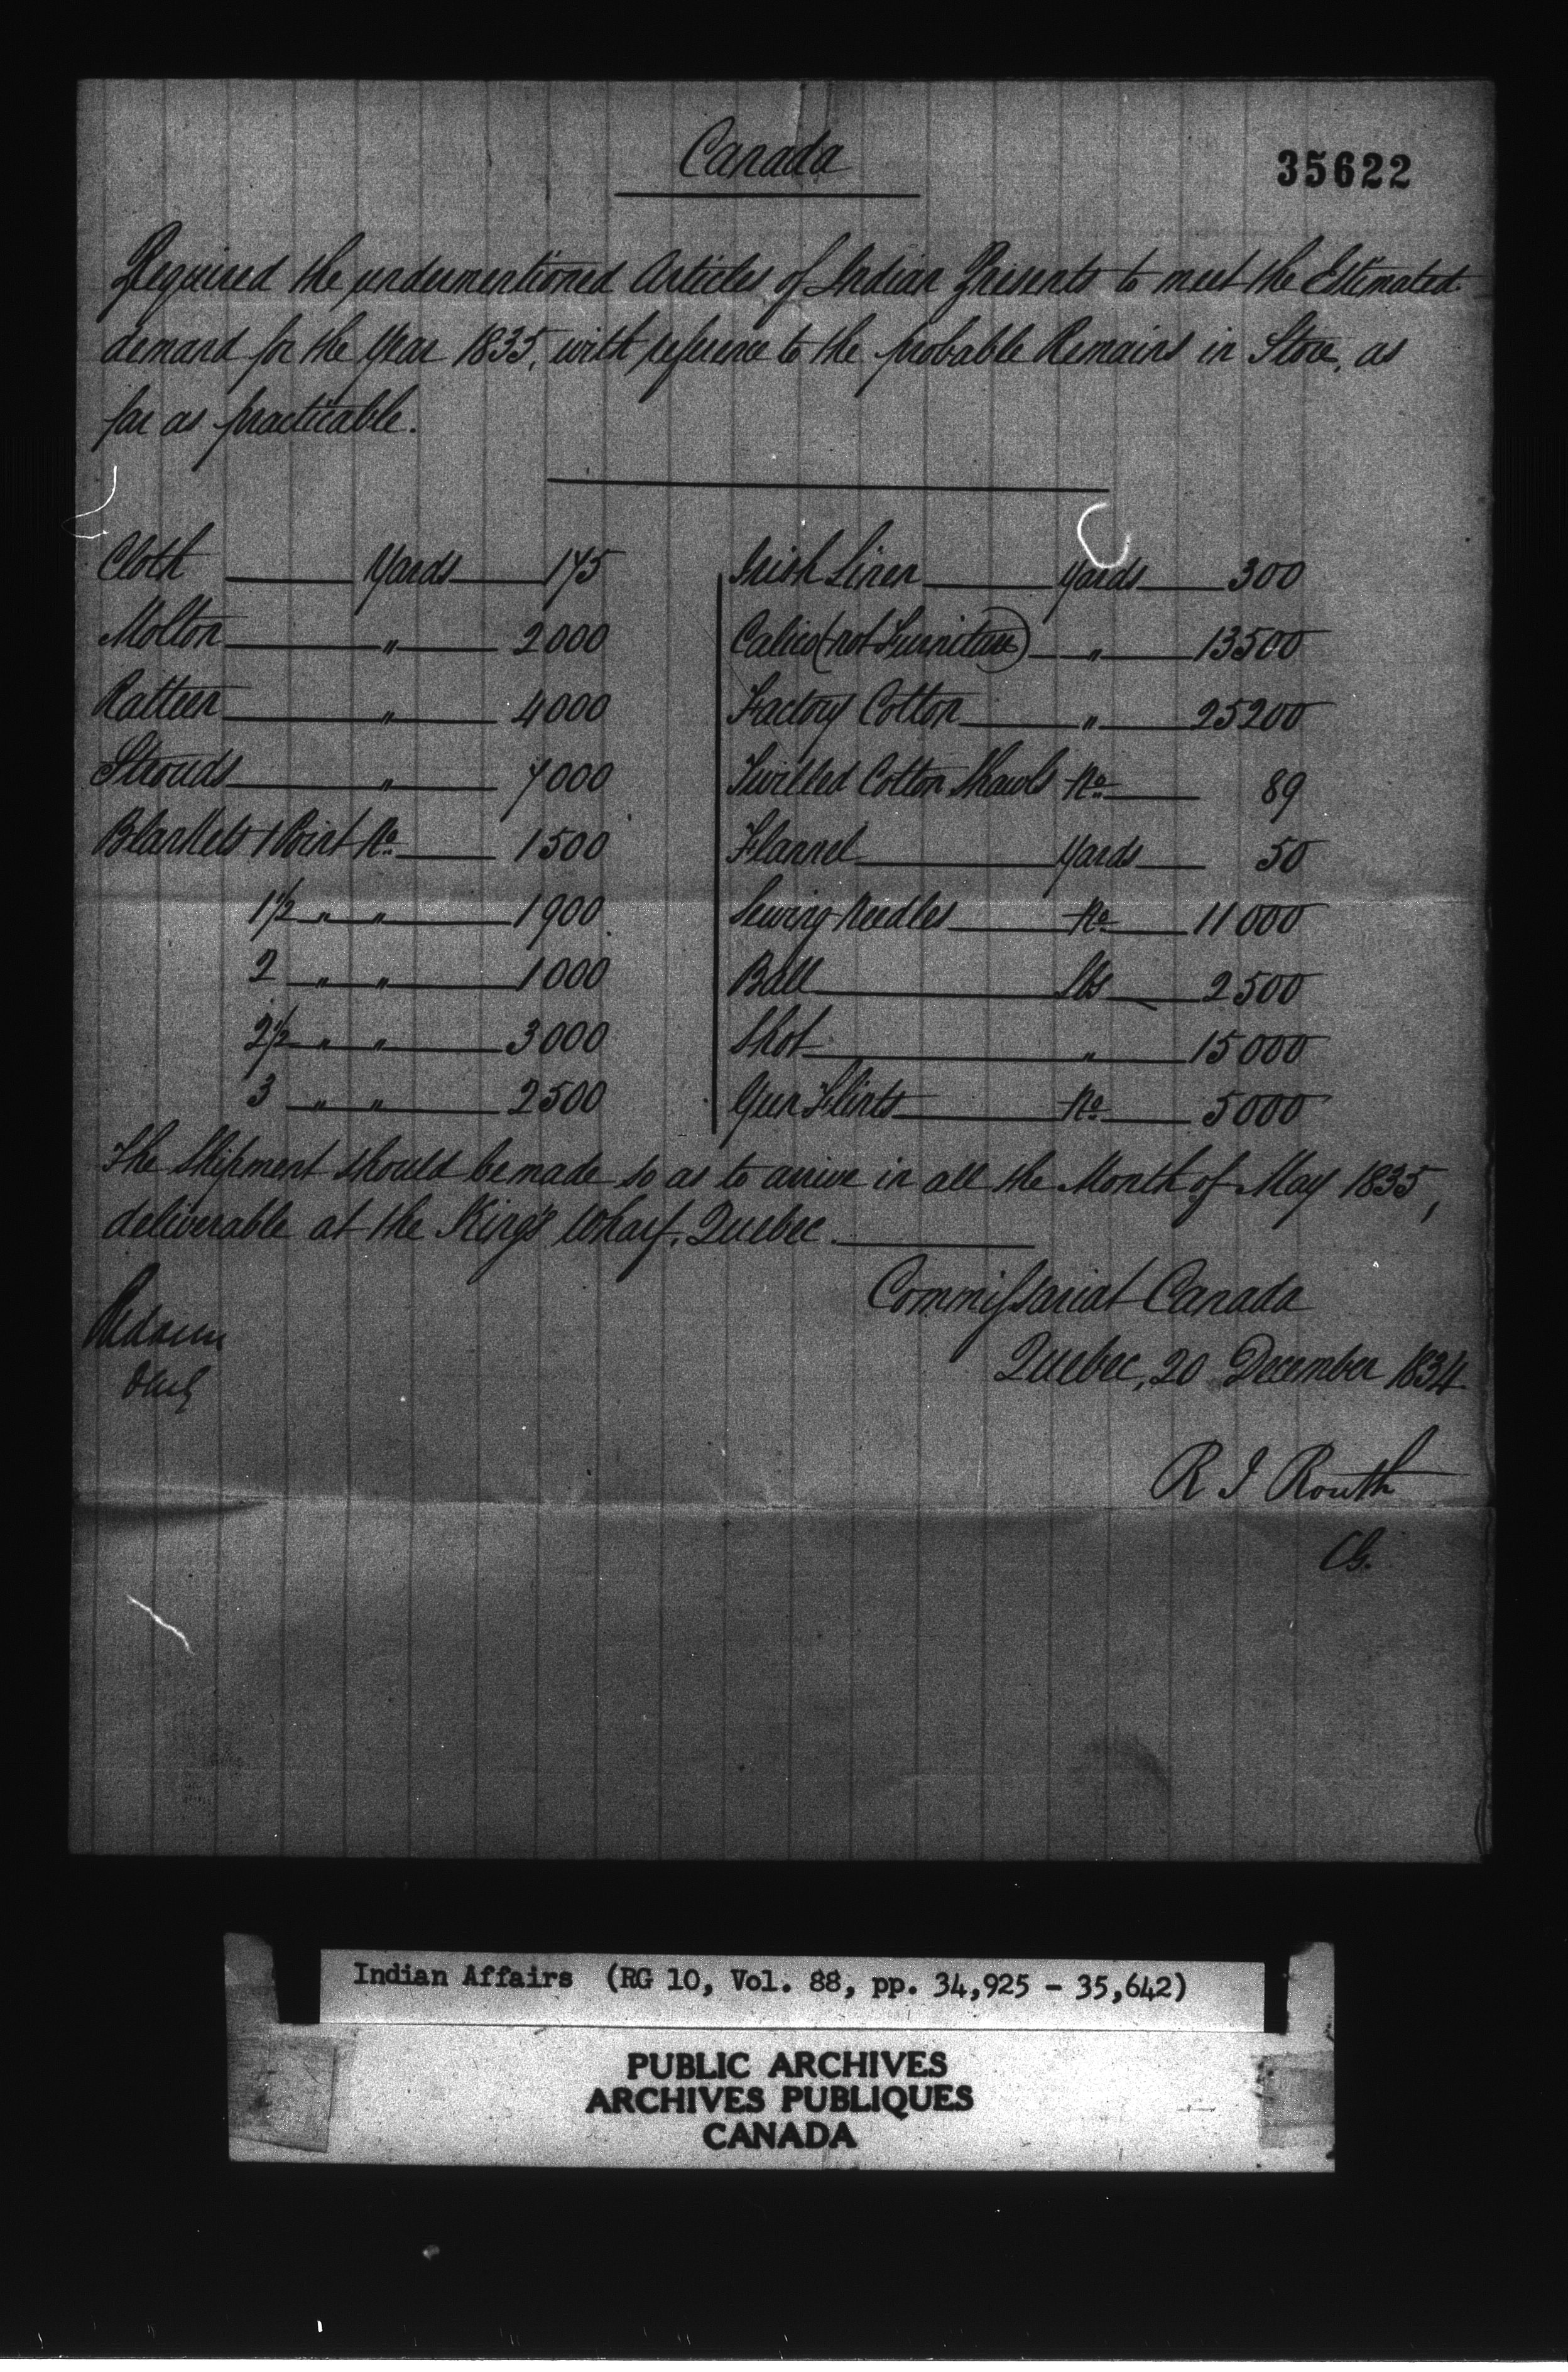 Canada
35622
Required the undermentioned Articles of Indian Presents to meet the Estimated
demand for the Year 1835, with reference to the probable Remains in Store, as
far as practicable.
Cloth Yards 175
Molton " 2000
Ratteen " 4000
Strouds " 7000
Blankets 1 Point No. 1500
1½ " " 1900
2 " " 1000
2½ " " 3000
3 " " 2500
Irish Linen Yards 300
Calico (not Furniture) " 13500
Factory Cotton " 25200
Twilled Cotton Shawls No. 89
Flannel Yards 50
Sewing Needles No. 11000
Ball lbs 2500
Shot " 15000
Gun Flints No. 5000
The Shipment should be made so as to arrive in all the Month of May 1835,
deliverable at the King's Wharf, Quebec.
Commissariat Canada
Quebec, 20 December 1834
R I Routh
CG.
Indian Affairs (RG 10, Vol. 88, pp. 34,925 - 35,642)
PUBLIC ARCHIVES
ARCHIVES PUBLIQUES
CANADA